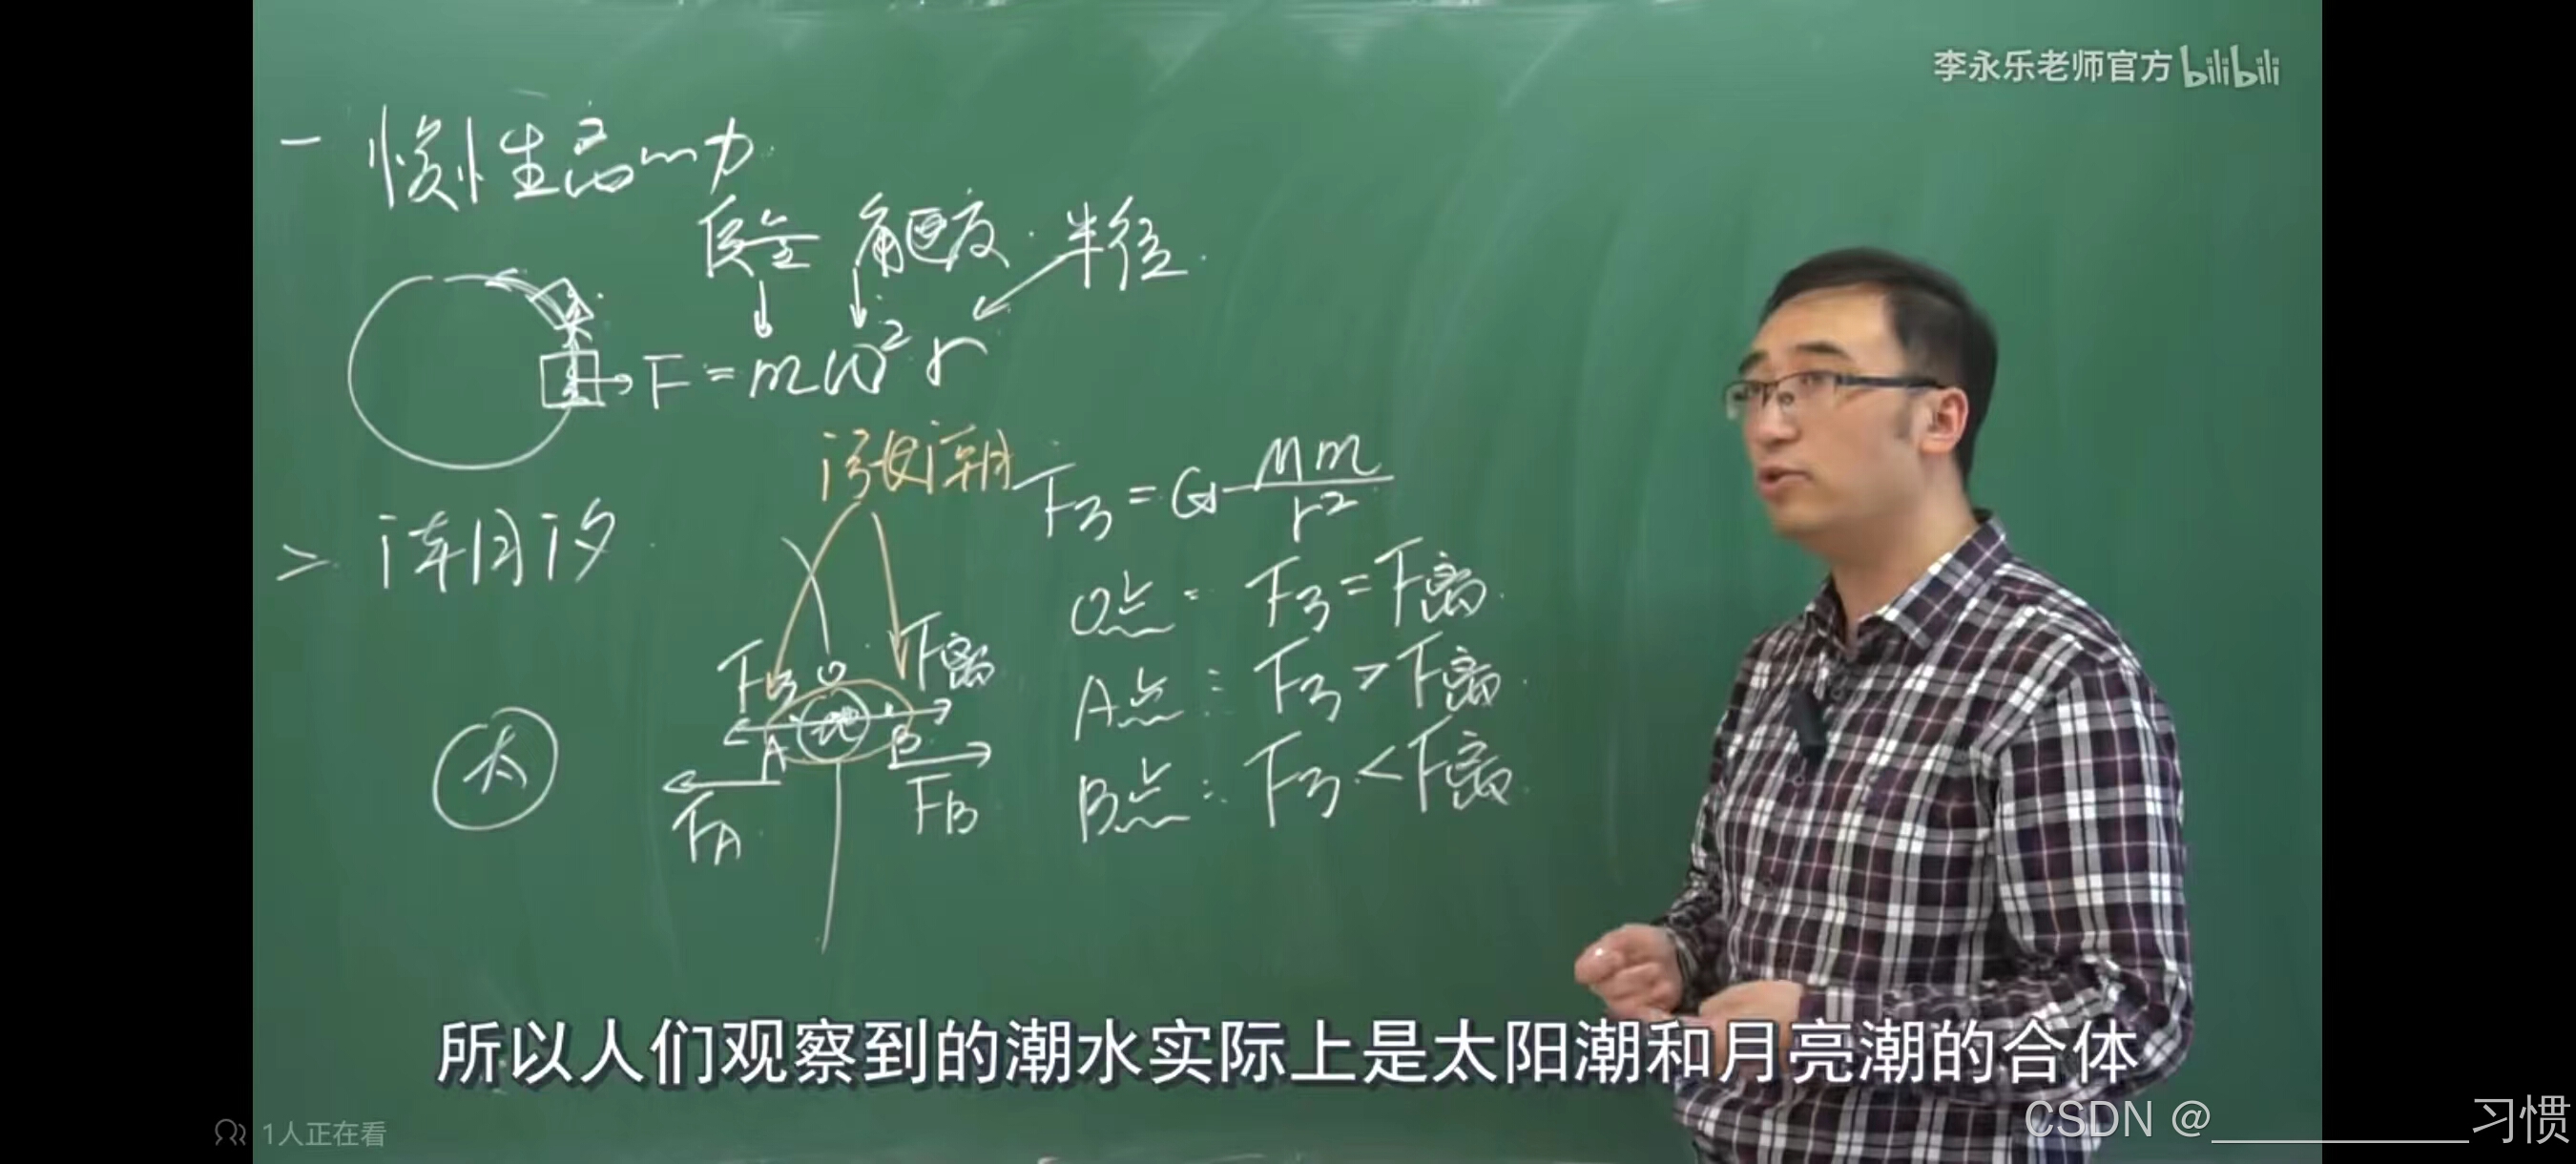 李永乐老师官方 bilibili
一 惯性离心力
质量 角速度 半径
F = mω²r
涨潮
F引 = G Mm/r²
二 潮汐
O点: F引 = F离
F引 O F离
A点: F引 > F离
太
A 地 B
B点: F引 < F离
FA FB
所以人们观察到的潮水实际上是太阳潮和月亮潮的合体
1人正在看
CSDN @___________习惯